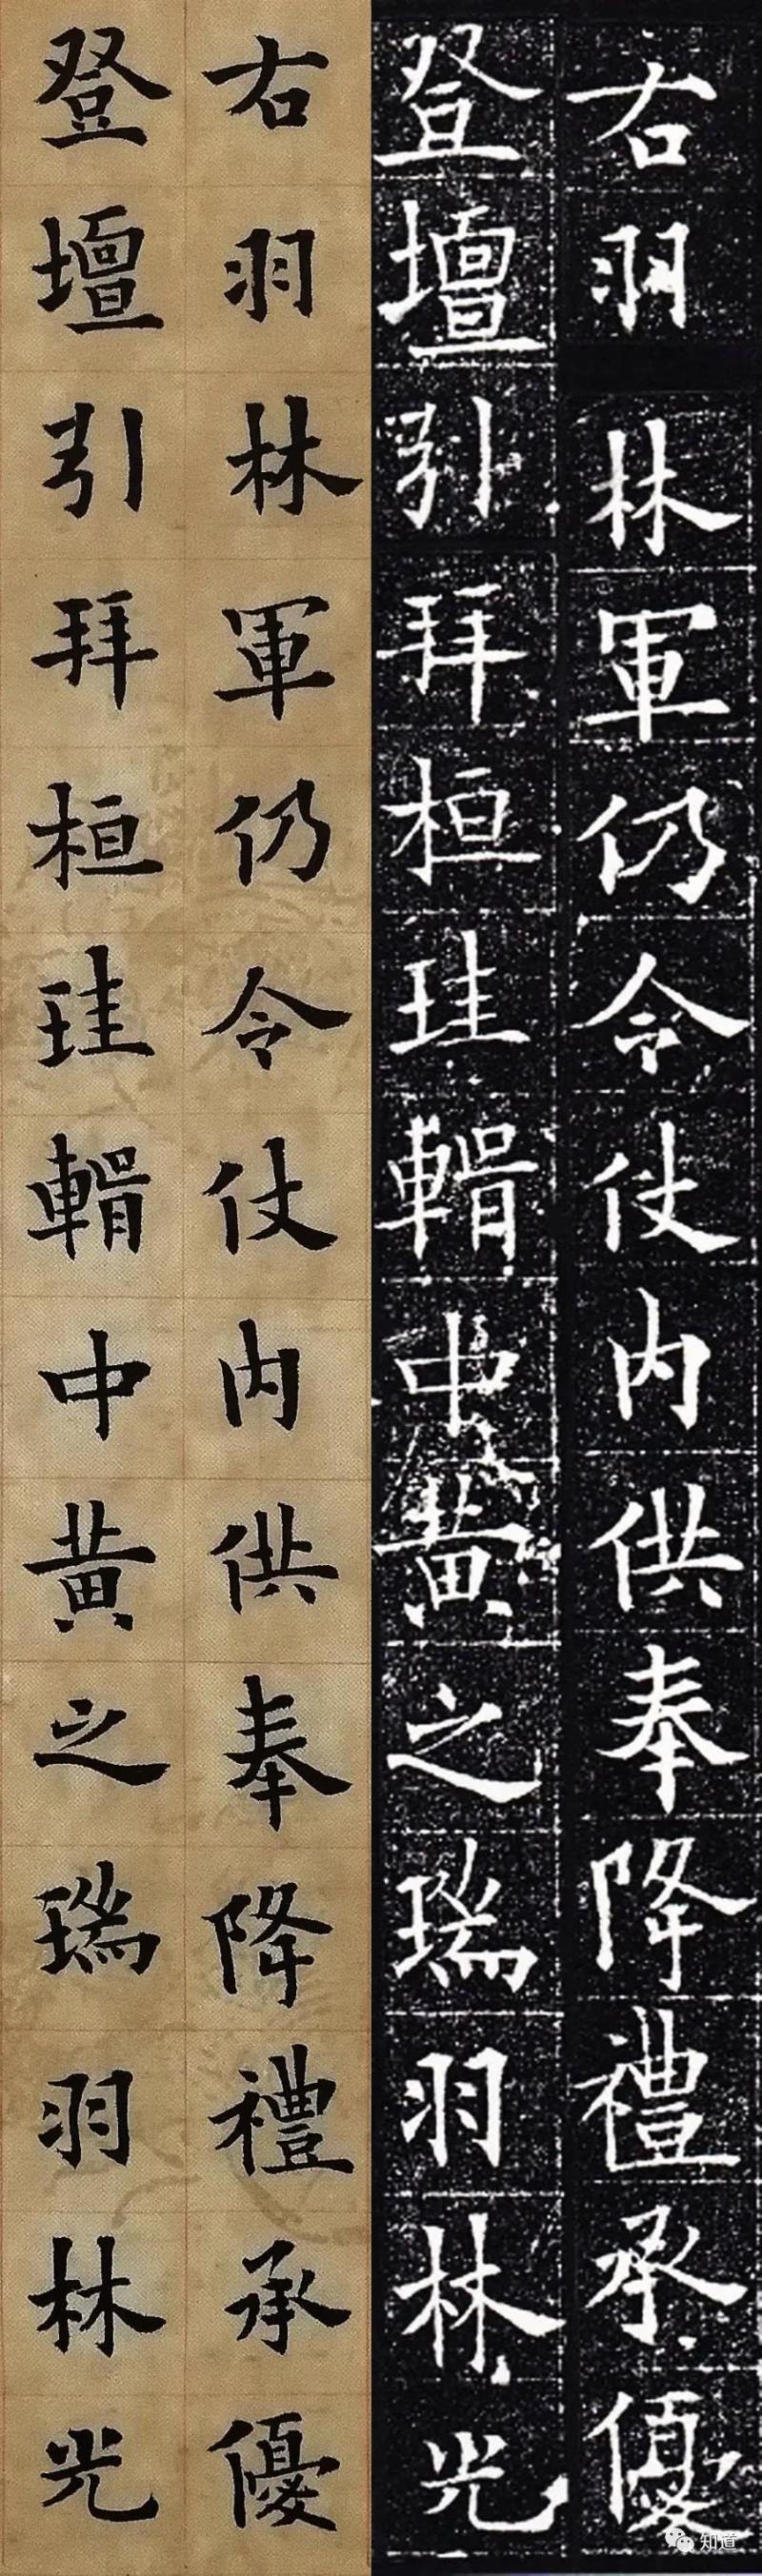 右羽林軍仍令仗内供奉降禮承優
登壇引拜桓珪輯中黃之瑞羽林光
右羽林軍仍令仗内供奉降禮承優
登壇引拜桓珪輯中黃之瑞羽林光
知道